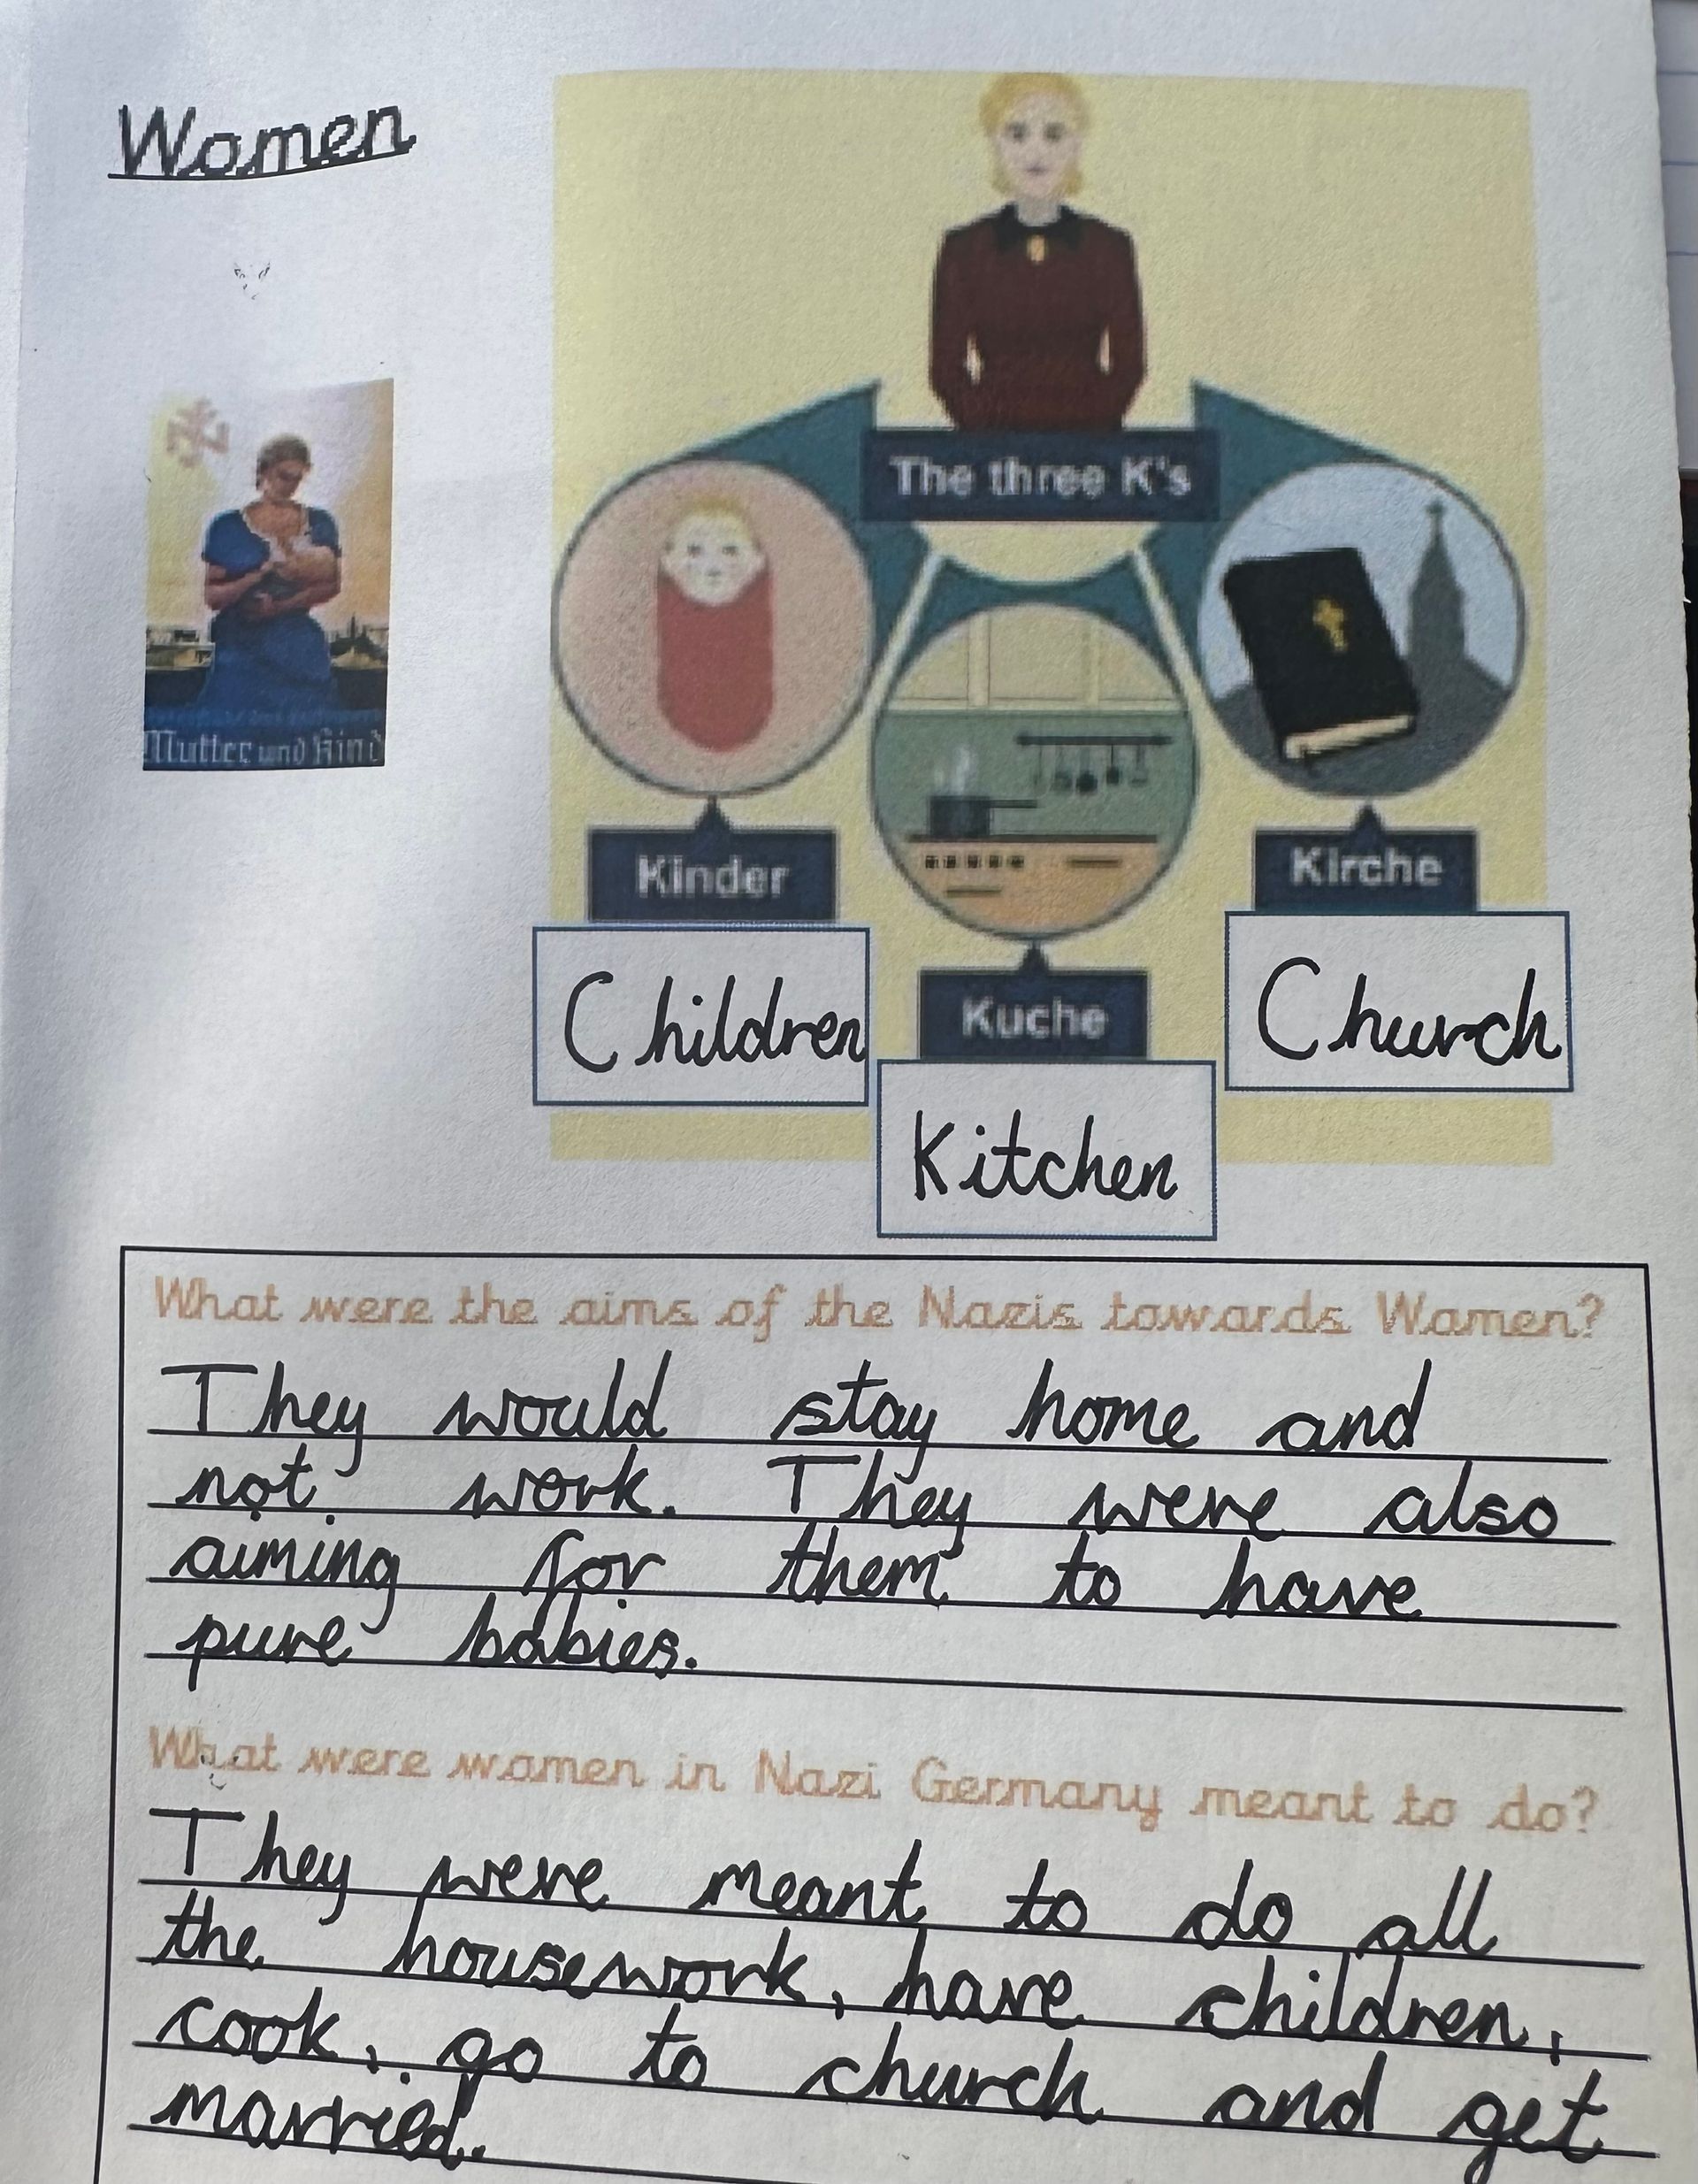 Women
The three K's
Kinder
Kirche
Kuche
Children
Church
Kitchen
Mutter und Kind
What were the aims of the Nazis towards Women?
They would stay home and
not work. They were also
aiming for them to have
pure babies.
What were women in Nazi Germany meant to do?
They were meant to do all
the housework, have children,
cook, go to church and get
married.